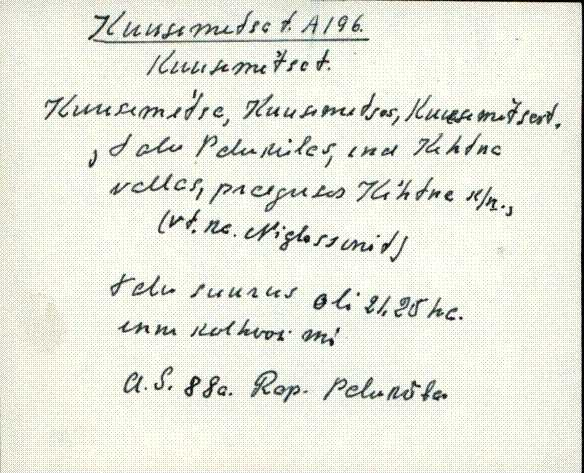 Kuusemetsa t. A196.
Kuusemètsa t.
Kuusemètsa, Kuusemetsas, Kuusemètsast,
, talu Palukülas, end Kehtna
vallas, praeguses Kèhtna k/n.,
(vt. ka.
talu suurus oli 21,25 ha.
enne kolhoosi
A.S. 88a. Rap. Paluküla